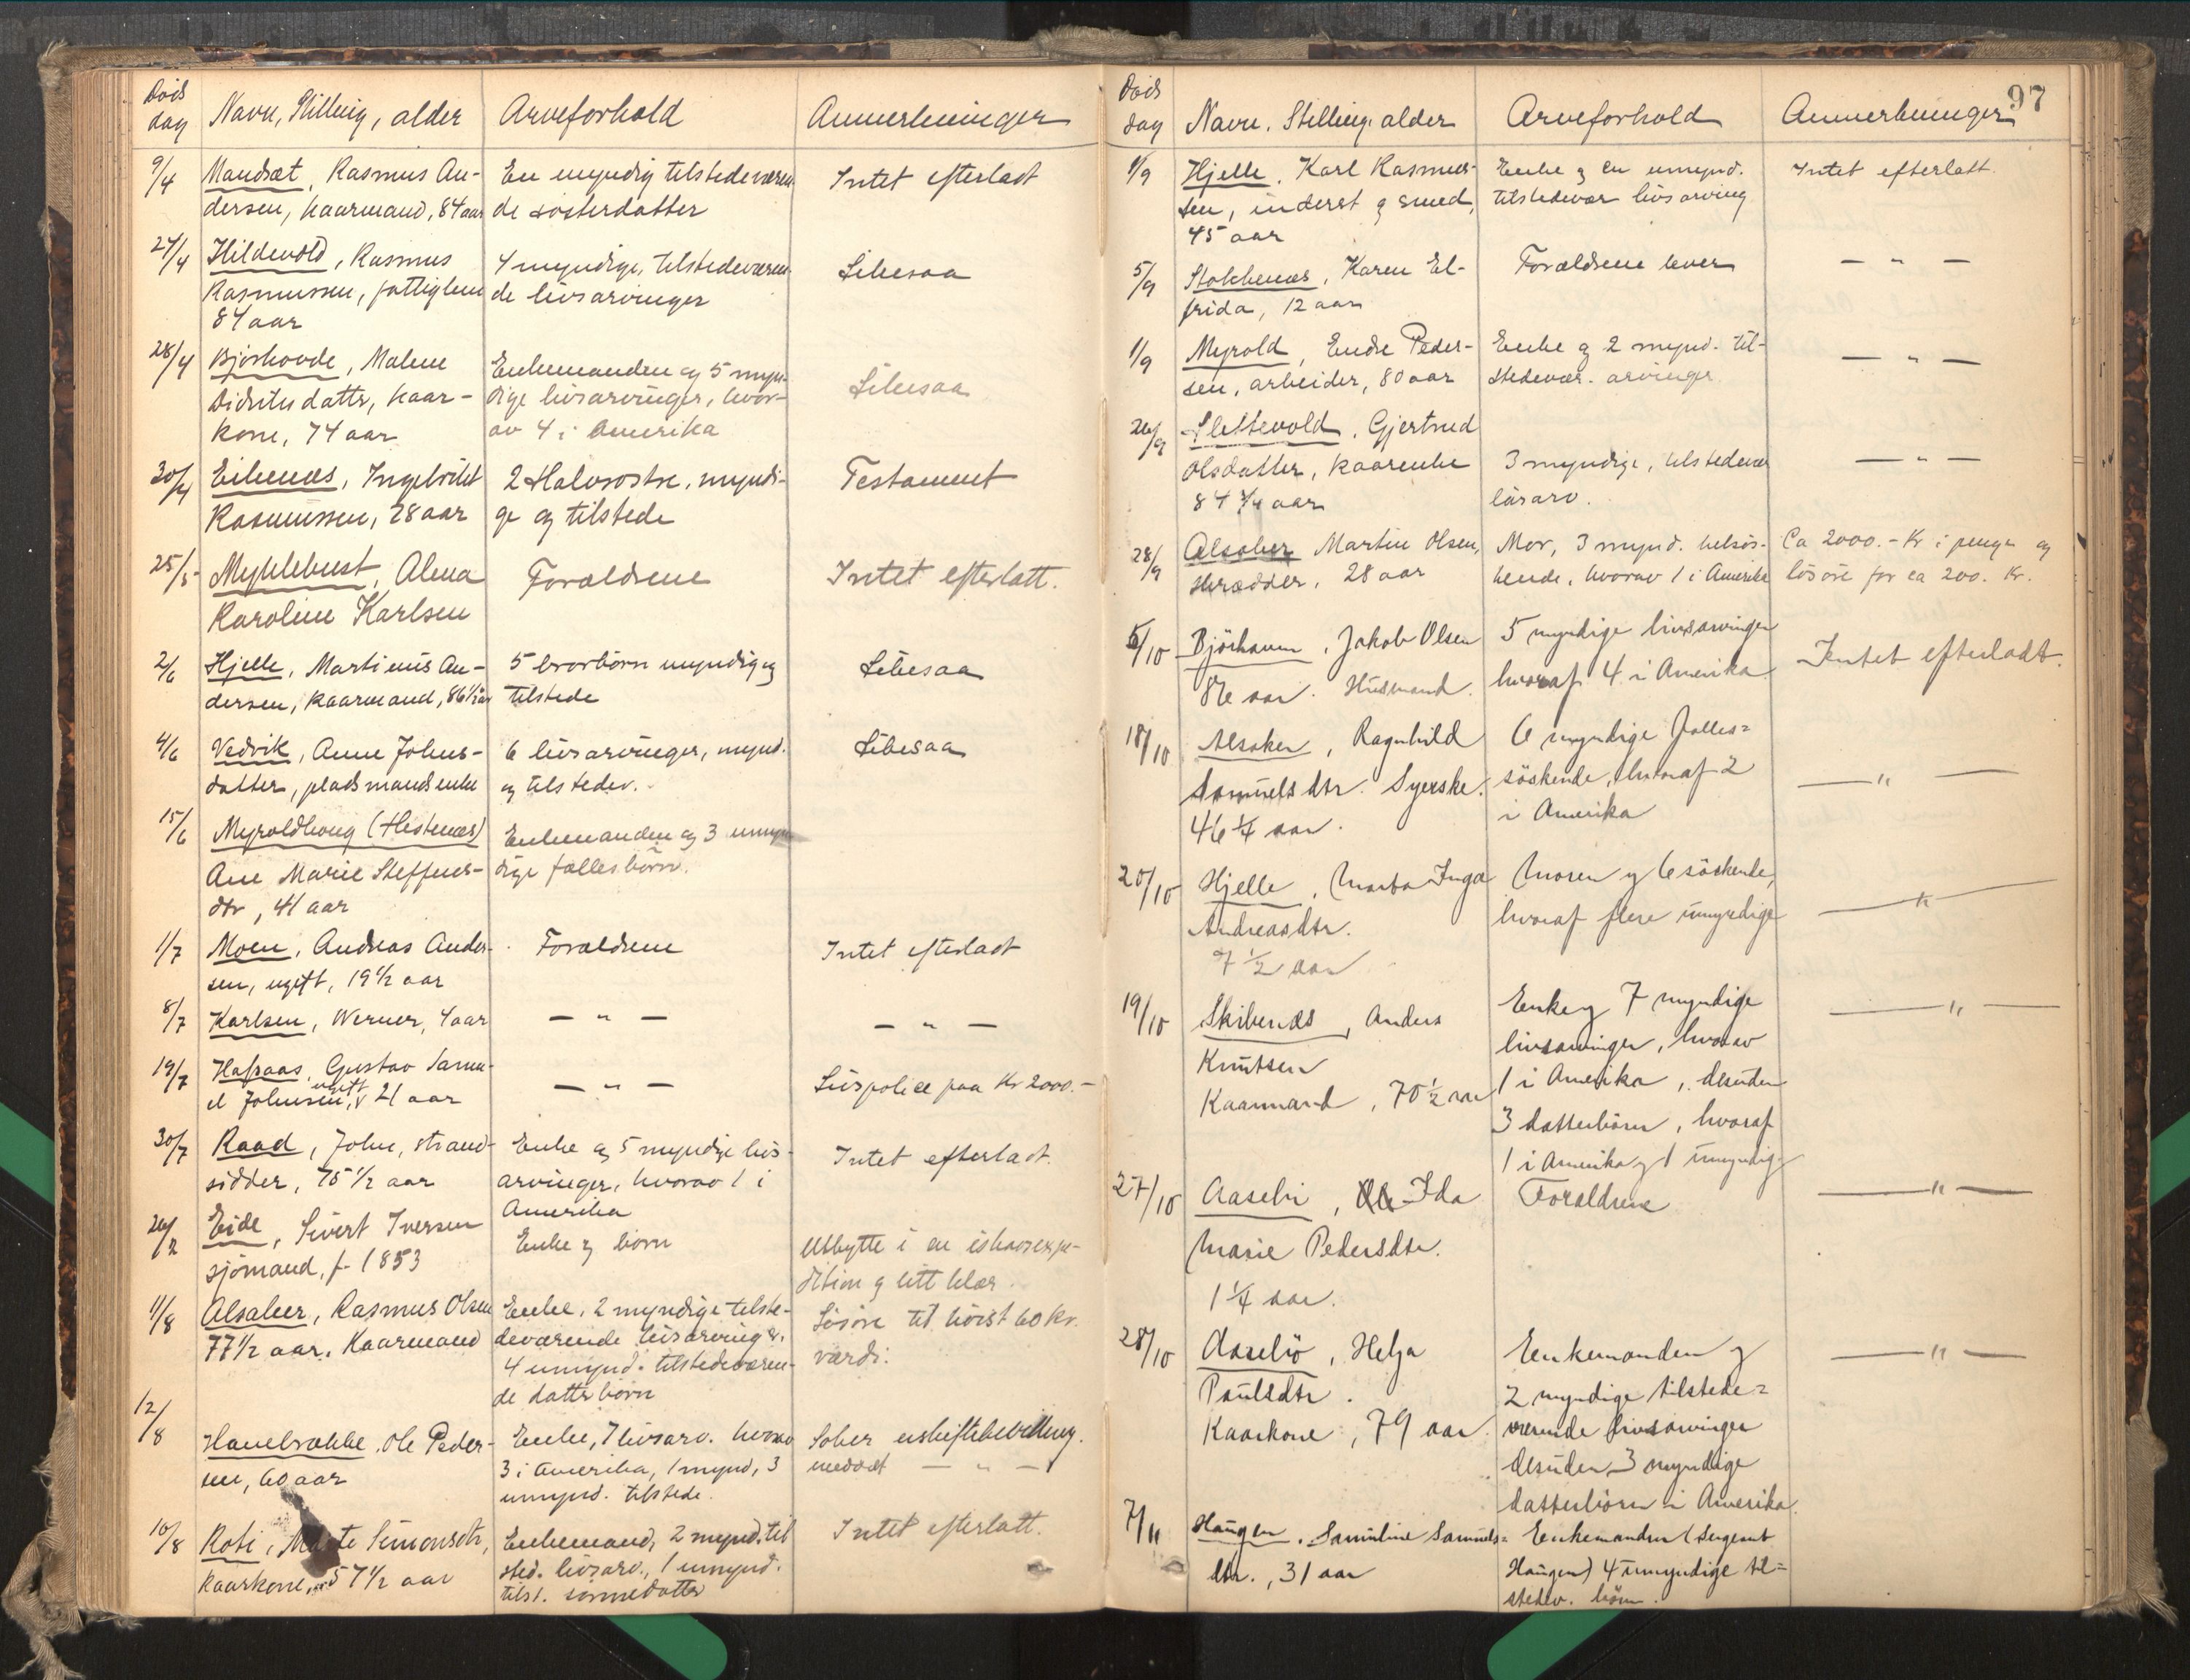 Døds
dag
Navn, Stilling, alder
Arveforhold
Anmerkninger
9/4
Mandsæt, Rasmus An-
dersen, kaarmand, 84 aar
En myndig tilstedeværen-
de søsterdatter
Intet efterladt
24/4
Hildevold, Rasmus
Rasmussen, fattiglem
84 aar
4 myndige, tilstedeværen-
de livsarvinger
Likesaa
28/4
Bjørhovde, Malene
Didriks datter, kaar-
kone, 74 aar
Enkemanden og 5 myn-
dige livsarvinger, hvor-
av 4 i Amerika
Likesaa
30/4
Eikenæs, Ingebrikt
Rasmussen, 28 aar
2 Halvsøstre, myndi-
ge og tilstede
Testament
25/5
Myklebust, Alma
Karoline Karlsen
Forældrene
Intet efterlatt.
2/6
Hjelle, Martinus An-
dersen, kaarmand, 86½ aar
5 brorbørn myndig og
tilstede
Likesaa
4/6
Vedvik, Anne Johns-
datter, pladsmandsenke
6 livsarvinger, mynd.
og tilstedev.
Likesaa
15/6
Myroldhoug (Hestenæs)
Ane Marie Steffens-
dtr, 41 aar
Enkemanden og 3 umyn-
dige fællesbørn.
1/7
Moen, Andreas Ander-
sen, ugift, 19½ aar
Forældrene
Intet efterladt
8/7
Karlsen, Werner, 4 aar
— " —
— " —
19/7
Hafsaas, Gustav Samu-
el Johnsen, ugift, 21 aar
— " —
Livspolice paa Kr 2000.-
30/7
Raad, John, strand-
sidder, 75½ aar
Enke og 5 myndige livs-
arvinger, hvorav 1 i
Amerika
Intet efterladt.
26/2
Eide, Sivert Iversen
sjømand, f. 1853
Enke og børn
Utbytte i en ishavsexpe-
dition og litt klær.
11/8
Alsaker, Rasmus Olsen
77½ aar, Kaarmand
Enke, 2 myndige tilste-
deværende livsarvinger.
4 umynd. tilstedeværen-
de datterbørn
Løsøre til høist 60 kr.
værdi.
12/8
Havelbrække, Ole Peder-
sen, 60 aar
Enke, 7 livsarv. hvorav
3 i Amerika, 1 mynd, 3
umynd. tilstede.
Søker uskiftebevilling.
meddelt — " —
10/8
Roti, Simonsdtr,
kaarkone, 57½ aar
Enkemand, 2 mynd. til
sted. livsarv., 1 umynd.
tilst. sønnedatter
Intet efterlatt.
97
Døds
dag
Navn. Stilling. alder
Arveforhold
Anmerkninger
1/9
Hjelle, Karl Rasmus-
sen, inderst og smed,
45 aar
Enke og en umynd.
tilstedevær livsarving
Intet efterlatt.
5/9
Stokkenæs, Karen El-
frida, 12 aar
Forældrene lever
— " —
1/9
Myrold, Endre Peder-
sen, arbeider, 80 aar
Enke og 2 mynd. til-
stedevær. arvinger
— " —
26/9
Slettevold, Gjertrud
Olsdatter, kaarenke
84 ¾ aar
3 myndige, tilstedevær
livsarv.
— " —
28/9
Alsaker Martin Olsen,
skrædder, 28 aar
Mor, 3 mynd. helsøs-
kende, hvorav 1 i Amerika
Ca 2000.- Kr i penger og
løsøre for ca 200. Kr.
6/10
Björhavn, Jakob Olsen
86 aar. Husmand.
5 myndige livsarvinger
hvoraf 4 i Amerika
Intet efterladt.
18/10
Alsaker, Ragnhild
Samuelsdtr. Syerske.
46¼ aar.
6 myndige fælles=
söskende, hvoraf 2
i Amerika
— " —
20/10
Hjelle, Marta Inga
Andreasdtr.
7½ aar
Moren og 6 söskende,
hvoraf flere umyndige
— " —
19/10
Skibenæs, Anders
Knutsen
Kaarmand, 70½ aar
Enke og 7 myndige
livsarvinger, hvorav
1 i Amerika, desuden
3 datterbörn, hvoraf
1 i Amerika og 1 umyndig
— " —
27/10
Aaselü, Ida
Marie Pedersdtr.
1¼ aar.
Forældrene
— " —
28/10
Aaselü, Helga
Paulsdtr.
Kaarkone, 79 aar
Enkemanden og
2 myndige tilstede=
værende livsarvinger
desuden 3 myndige
datterbörn i Amerika.
— " —
7/11
Haugen, Samuline Samuels=
dtr., 31 aar
Enkemanden (Sergeant
Haugen) 4 umyndige til=
stedev. börn.